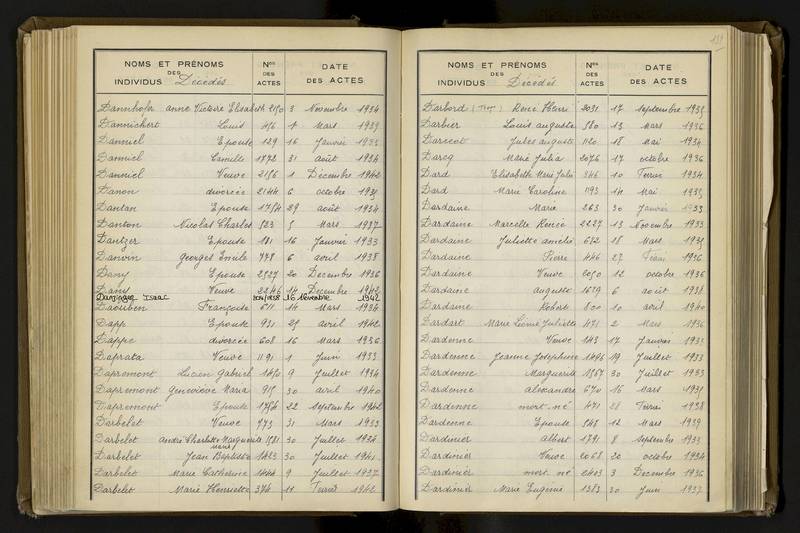 NOMS ET PRÉNOMS
DES
INDIVIDUS Décédés
Nos
DES
ACTES
DATE
DES ACTES
Dannhofer Anne Victoire Elisabeth 2150 3 Novembre 1934
Dannichert Louis 416 1 Mars 1939
Danniel Epouse 129 16 Janvier 1933
Danniel Camille 1772 31 août 1934
Danniel Veuve 2156 1 Décembre 1942
Danon divorcée 2144 6 octobre 1935
Dantan Epouse 1754 29 août 1934
Danton Nicolas Charles 523 5 Mars 1937
Dantzer Epouse 181 16 Janvier 1933
Danvin Georges Emile 778 6 avril 1938
Dany Epouse 2527 20 Decembre 1936
Dany Veuve 2246 14 Decembre 1942
Danzinger Isaac 16 Novembre 1942
Daouben Françoise 611 14 Mars 1934
Dapp Epouse 931 29 avril 1942
Dappe divorcée 608 16 Mars 1936
Daprata Veuve 1191 1 Juin 1933
Dapremont Lucien Gabriel 1450 9 Juillet 1934
Dapremont Geneviève Maria 915 30 avril 1940
Dapremont Epouse 1754 22 Septembre 1942
Darbelet Veuve 773 31 Mars 1933
Darbelet André Charlotte Marguerite 1581 30 Juillet 1934
Darbelet Jean Baptiste 1423 30 Juillet 1941
Darbelet Marie Catherine 1444 9 Juillet 1937
Darbelet Marie Henriette 374 11 Février 1942
139
NOMS ET PRÉNOMS
DES
INDIVIDUS Décédés
Nos
DES
ACTES
DATE
DES ACTES
Darbord René Henri 2031 17 Septembre 1935
Darbier Louis auguste 580 13 Mars 1936
Daricot Jules auguste 1120 18 Mai 1934
Darcq Marie Julia 2076 17 octobre 1936
Dard Elisabeth Marie Julie 346 10 Février 1934
Dard Marie Caroline 1193 14 Mai 1935
Dardaine Marie 263 30 Janvier 1933
Dardaine Marcelle Renée 2227 13 Novembre 1933
Dardaine Juliette amélie 652 18 Mars 1935
Dardaine Pierre 446 27 Février 1936
Dardaine Veuve 2050 12 octobre 1936
Dardaine auguste 1659 6 août 1938
Dardaine Robert 800 10 avril 1940
Dardart Marie Léonie Juliette 471 2 Mars 1936
Dardenne Veuve 143 17 Janvier 1935
Dardenne Jeanne Josephine 1496 19 Juillet 1933
Dardenne Marguerite 1567 30 Juillet 1933
Dardenne alexandre 670 16 Mars 1935
Dardenne mort-né 471 28 Février 1938
Dardenne Epouse 548 12 Mars 1939
Dardinier Albert 1791 8 Septembre 1933
Dardinier Veuve 2068 20 octobre 1934
Dardinier mort-né 2403 3 Decembre 1936
Dardinier Marie Eugénie 1383 30 Juin 1937